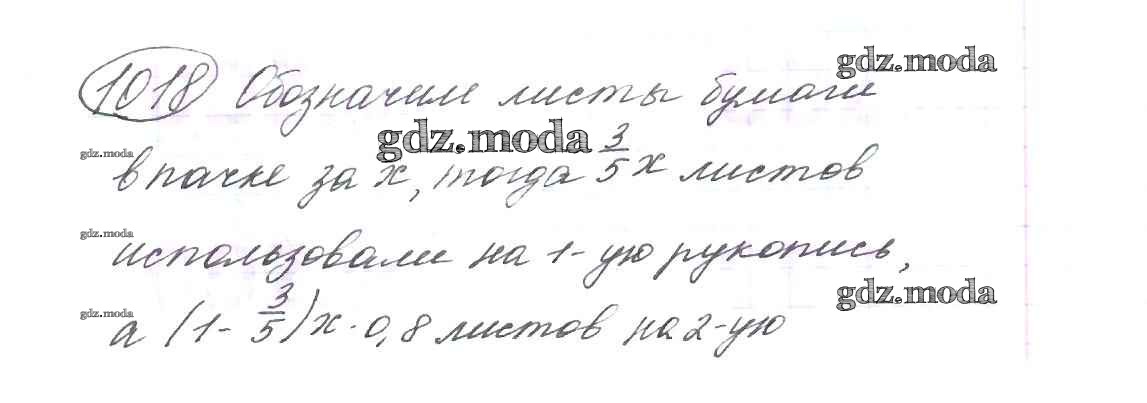 1018 Обозначим листы бумаги gdz.moda
gdz.moda в пачке за x, тогда 3/5 x листов gdz.moda
gdz.moda использовали на 1-ую рукопись,
gdz.moda а (1 - 3/5)x · 0,8 листов на 2-ую gdz.moda